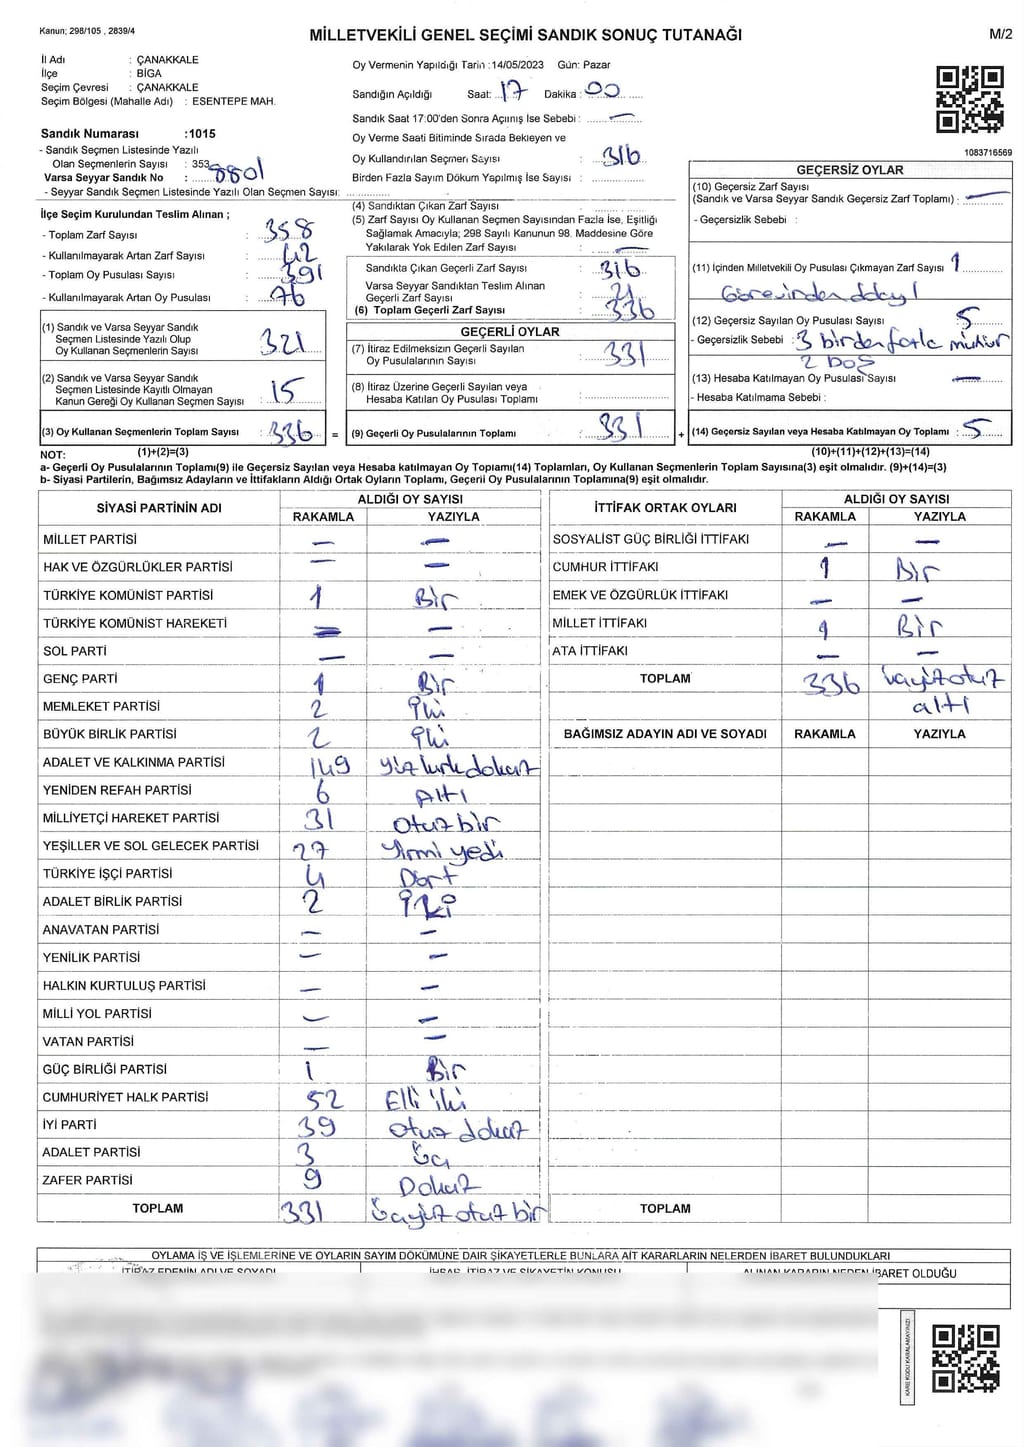 Kanun; 298/105 , 2839/4
MİLLETVEKİLİ GENEL SEÇİMİ SANDIK SONUÇ TUTANAĞI
M/2
İl Adı : ÇANAKKALE
İlçe : BİGA
Seçim Çevresi : ÇANAKKALE
Seçim Bölgesi (Mahalle Adı) : ESENTEPE MAH.
Sandık Numarası :1015
- Sandık Seçmen Listesinde Yazılı
Olan Seçmenlerin Sayısı : 353
Varsa Seyyar Sandık No : 8801
- Seyyar Sandık Seçmen Listesinde Yazılı Olan Seçmen Sayısı:
İlçe Seçim Kurulundan Teslim Alınan ;
- Toplam Zarf Sayısı : 358
- Kullanılmayarak Artan Zarf Sayısı : 42
- Toplam Oy Pusulası Sayısı : 391
- Kullanılmayarak Artan Oy Pusulası : 76
(1) Sandık ve Varsa Seyyar Sandık
Seçmen Listesinde Yazılı Olup
Oy Kullanan Seçmenlerin Sayısı : 321
(2) Sandık ve Varsa Seyyar Sandık
Seçmen Listesinde Kayıtlı Olmayan
Kanun Gereği Oy Kullanan Seçmen Sayısı : 15
(3) Oy Kullanan Seçmenlerin Toplam Sayısı : 336 =
Oy Vermenin Yapıldığı Tarih :14/05/2023 Gün: Pazar
Sandığın Açıldığı Saat: 17 Dakika : 00
Sandık Saat 17:00'den Sonra Açılmış İse Sebebi : —
Oy Verme Saati Bitiminde Sırada Bekleyen ve
Oy Kullandırılan Seçmen Sayısı : 316
Birden Fazla Sayım Döküm Yapılmış İse Sayısı :
(4) Sandıktan Çıkan Zarf Sayısı :
(5) Zarf Sayısı Oy Kullanan Seçmen Sayısından Fazla İse, Eşitliği
Sağlamak Amacıyla; 298 Sayılı Kanunun 98. Maddesine Göre
Yakılarak Yok Edilen Zarf Sayısı : —
Sandıkta Çıkan Geçerli Zarf Sayısı : 316
Varsa Seyyar Sandıktan Teslim Alınan
Geçerli Zarf Sayısı : 21
(6) Toplam Geçerli Zarf Sayısı : 336
GEÇERLİ OYLAR
(7) İtiraz Edilmeksizin Geçerli Sayılan
Oy Pusulalarının Sayısı : 331
(8) İtiraz Üzerine Geçerli Sayılan veya
Hesaba Katılan Oy Pusulası Toplamı :
(9) Geçerli Oy Pusulalarının Toplamı : 331 +
1083716569
GEÇERSİZ OYLAR
(10) Geçersiz Zarf Sayısı
(Sandık ve Varsa Seyyar Sandık Geçersiz Zarf Toplamı) : —
- Geçersizlik Sebebi :
(11) İçinden Milletvekili Oy Pusulası Çıkmayan Zarf Sayısı 1
(12) Geçersiz Sayılan Oy Pusulası Sayısı : 5
- Geçersizlik Sebebi : 3 birden fazla mühür
2 Boş
(13) Hesaba Katılmayan Oy Pusulası Sayısı : —
- Hesaba Katılmama Sebebi :
(14) Geçersiz Sayılan veya Hesaba Katılmayan Oy Toplamı : 5
NOT: (1)+(2)=(3) (10)+(11)+(12)+(13)=(14)
a- Geçerli Oy Pusulalarının Toplamı(9) ile Geçersiz Sayılan veya Hesaba katılmayan Oy Toplamı(14) Toplamları, Oy Kullanan Seçmenlerin Toplam Sayısına(3) eşit olmalıdır. (9)+(14)=(3)
b- Siyasi Partilerin, Bağımsız Adayların ve İttifakların Aldığı Ortak Oyların Toplamı, Geçerli Oy Pusulalarının Toplamına(9) eşit olmalıdır.
SİYASİ PARTİNİN ADI ALDIĞI OY SAYISI
RAKAMLA YAZIYLA
MİLLET PARTİSİ — —
HAK VE ÖZGÜRLÜKLER PARTİSİ — —
TÜRKİYE KOMÜNİST PARTİSİ 1 Bir
TÜRKİYE KOMÜNİST HAREKETİ — —
SOL PARTİ — —
GENÇ PARTİ 1 Bir
MEMLEKET PARTİSİ 2 İki
BÜYÜK BİRLİK PARTİSİ 2 İki
ADALET VE KALKINMA PARTİSİ 149 Yüz kırk dokuz
YENİDEN REFAH PARTİSİ 6 Altı
MİLLİYETÇİ HAREKET PARTİSİ 31 Otuz bir
YEŞİLLER VE SOL GELECEK PARTİSİ 27 Yirmi yedi
TÜRKİYE İŞÇİ PARTİSİ 4 Dört
ADALET BİRLİK PARTİSİ 2 İki
ANAVATAN PARTİSİ — —
YENİLİK PARTİSİ — —
HALKIN KURTULUŞ PARTİSİ — —
MİLLİ YOL PARTİSİ — —
VATAN PARTİSİ — —
GÜÇ BİRLİĞİ PARTİSİ 1 Bir
CUMHURİYET HALK PARTİSİ 52 Elli iki
İYİ PARTİ 39 Otuz dokuz
ADALET PARTİSİ 3 Üç
ZAFER PARTİSİ 9 Dokuz
TOPLAM 331 üçyüz otuz bir
İTTİFAK ORTAK OYLARI ALDIĞI OY SAYISI
RAKAMLA YAZIYLA
SOSYALİST GÜÇ BİRLİĞİ İTTİFAKI — —
CUMHUR İTTİFAKI 1 Bir
EMEK VE ÖZGÜRLÜK İTTİFAKI — —
MİLLET İTTİFAKI 1 Bir
ATA İTTİFAKI — —
TOPLAM 336 üçyüzotuz
altı
BAĞIMSIZ ADAYIN ADI VE SOYADI RAKAMLA YAZIYLA
TOPLAM
OYLAMA İŞ VE İŞLEMLERİNE VE OYLARIN SAYIM DÖKÜMÜNE DAİR ŞİKAYETLERLE BUNLARA AİT KARARLARIN NELERDEN İBARET BULUNDUKLARI
İTİRAZ EDENİN ADI VE SOYADI İHBAR, İTİRAZ VE ŞİKAYETİN KONUSU ALINAN KARARIN NEDEN İBARET OLDUĞU
KARE KODU KARALAMAYINIZ!